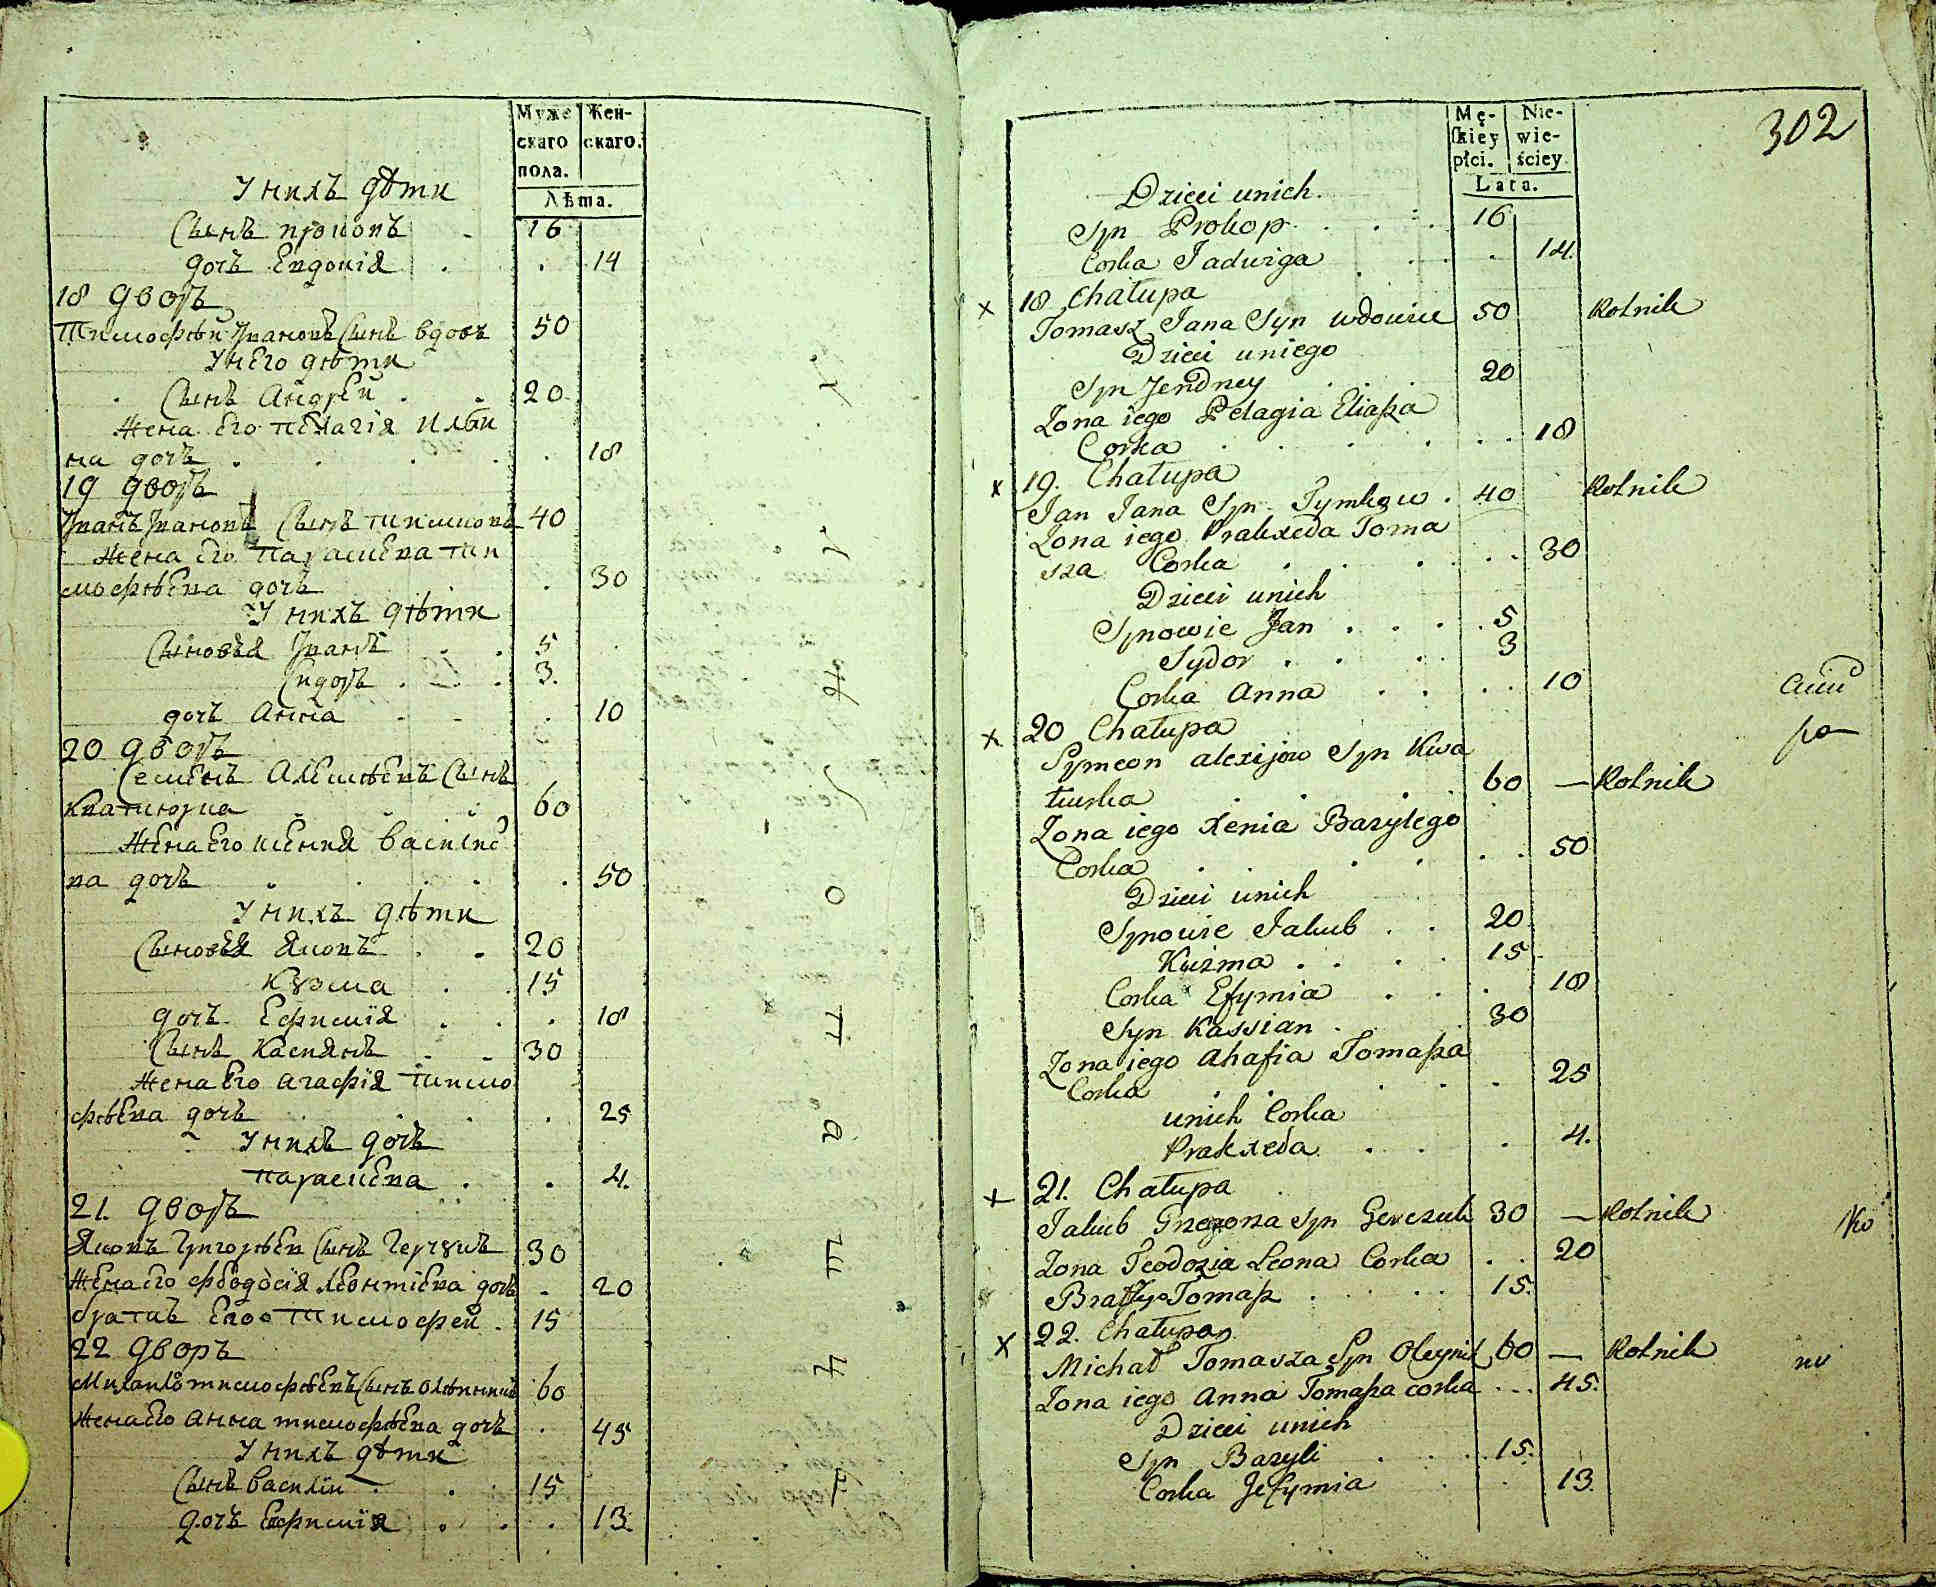 Муже
скаго
пола.
Жен-
скаго.
Лѣта.
У нихъ дѣти
Сынъ прокопъ 16
дочь Евдокія 14
18 дворъ
Тимофѣй Ивановъ Сынъ вдовъ 50
У него дѣти
Сынъ Андрей 20
Жена Его пелагія Ильи
на дочь 18
19 дворъ
Иванъ Ивановъ Сынъ тимковъ 40
Жена Его Параскева Тим
мофѣева дочь 30
У нихъ дѣти
Сыновья Иванъ 5
Сидоръ 3.
дочь Анна 10
20 дворъ
Семенъ Алексѣевъ Сынъ
Кватирка 60
Жена Его Ксенія василе
ва дочь 50
У нихъ дѣти
Сыновья Яковъ 20
Кузма 15
дочь Ефимія 18
Сынъ Касиянъ 30
Жена Его агафія тимо
фѣева дочь 25
У нихъ дочь
параскева 4.
21. дворъ
Яковъ Григорьев Сынъ Герчукъ 30
Жена Его феодосія Леонтіева дочь 20
братъ Его Тимофей 15
22 дворъ
Михаило тимофѣевъ Сынъ Олѣйникъ 60
Жена Его Анна тимофѣева дочь 45
У нихъ дѣти
Сынъ василій 15
дочь Ефимія 13.
302
Mę-
skiey
płci.
Nie-
wie-
ściey
Lata.
Dzieci unich.
Syn Prokop 16
Corka Jadwiga 14.
x 18 Chałupa
Tomasz Jana Syn wdowiec 50 Rolnik
Dzieci uniego
Syn Jendrey 20
Zona iego Pelagia Eliasza
Corka 18
x 19. Chałupa
Jan Jana Syn Tymkow 40 Rolnik
Zona iego Prakxeda Toma
sza Corka 30
Dzieci unich
Synowie Jan 5
Sydor 3
Corka Anna 10
x 20 Chałupa
Symeon alexijow Syn Kwa
turka 60 — Rolnik
Zona iego Xenia Bazylego
Corka 50
Dzieci unich
Synowie Jakub 20
Kuzma 15
Corka Efymia 18
Syn Kassian 30
Zona iego Ahafia Tomasza
Corka 25
unich Corka
Prakxeda 4.
x 21. Chałupa
Jakub Grzegorza syn Gerczuk 30 — Rolnik
Zona Teodozia Leona Corka 20
Brat Tomasz 15.
x 22. Chałupa
Michał Tomasza Syn Oleynik 60 — Rolnik
Zona iego Anna Tomasza corka 45.
Dzieci unich
Syn Bazyli 15.
Corka Jefymia 13.